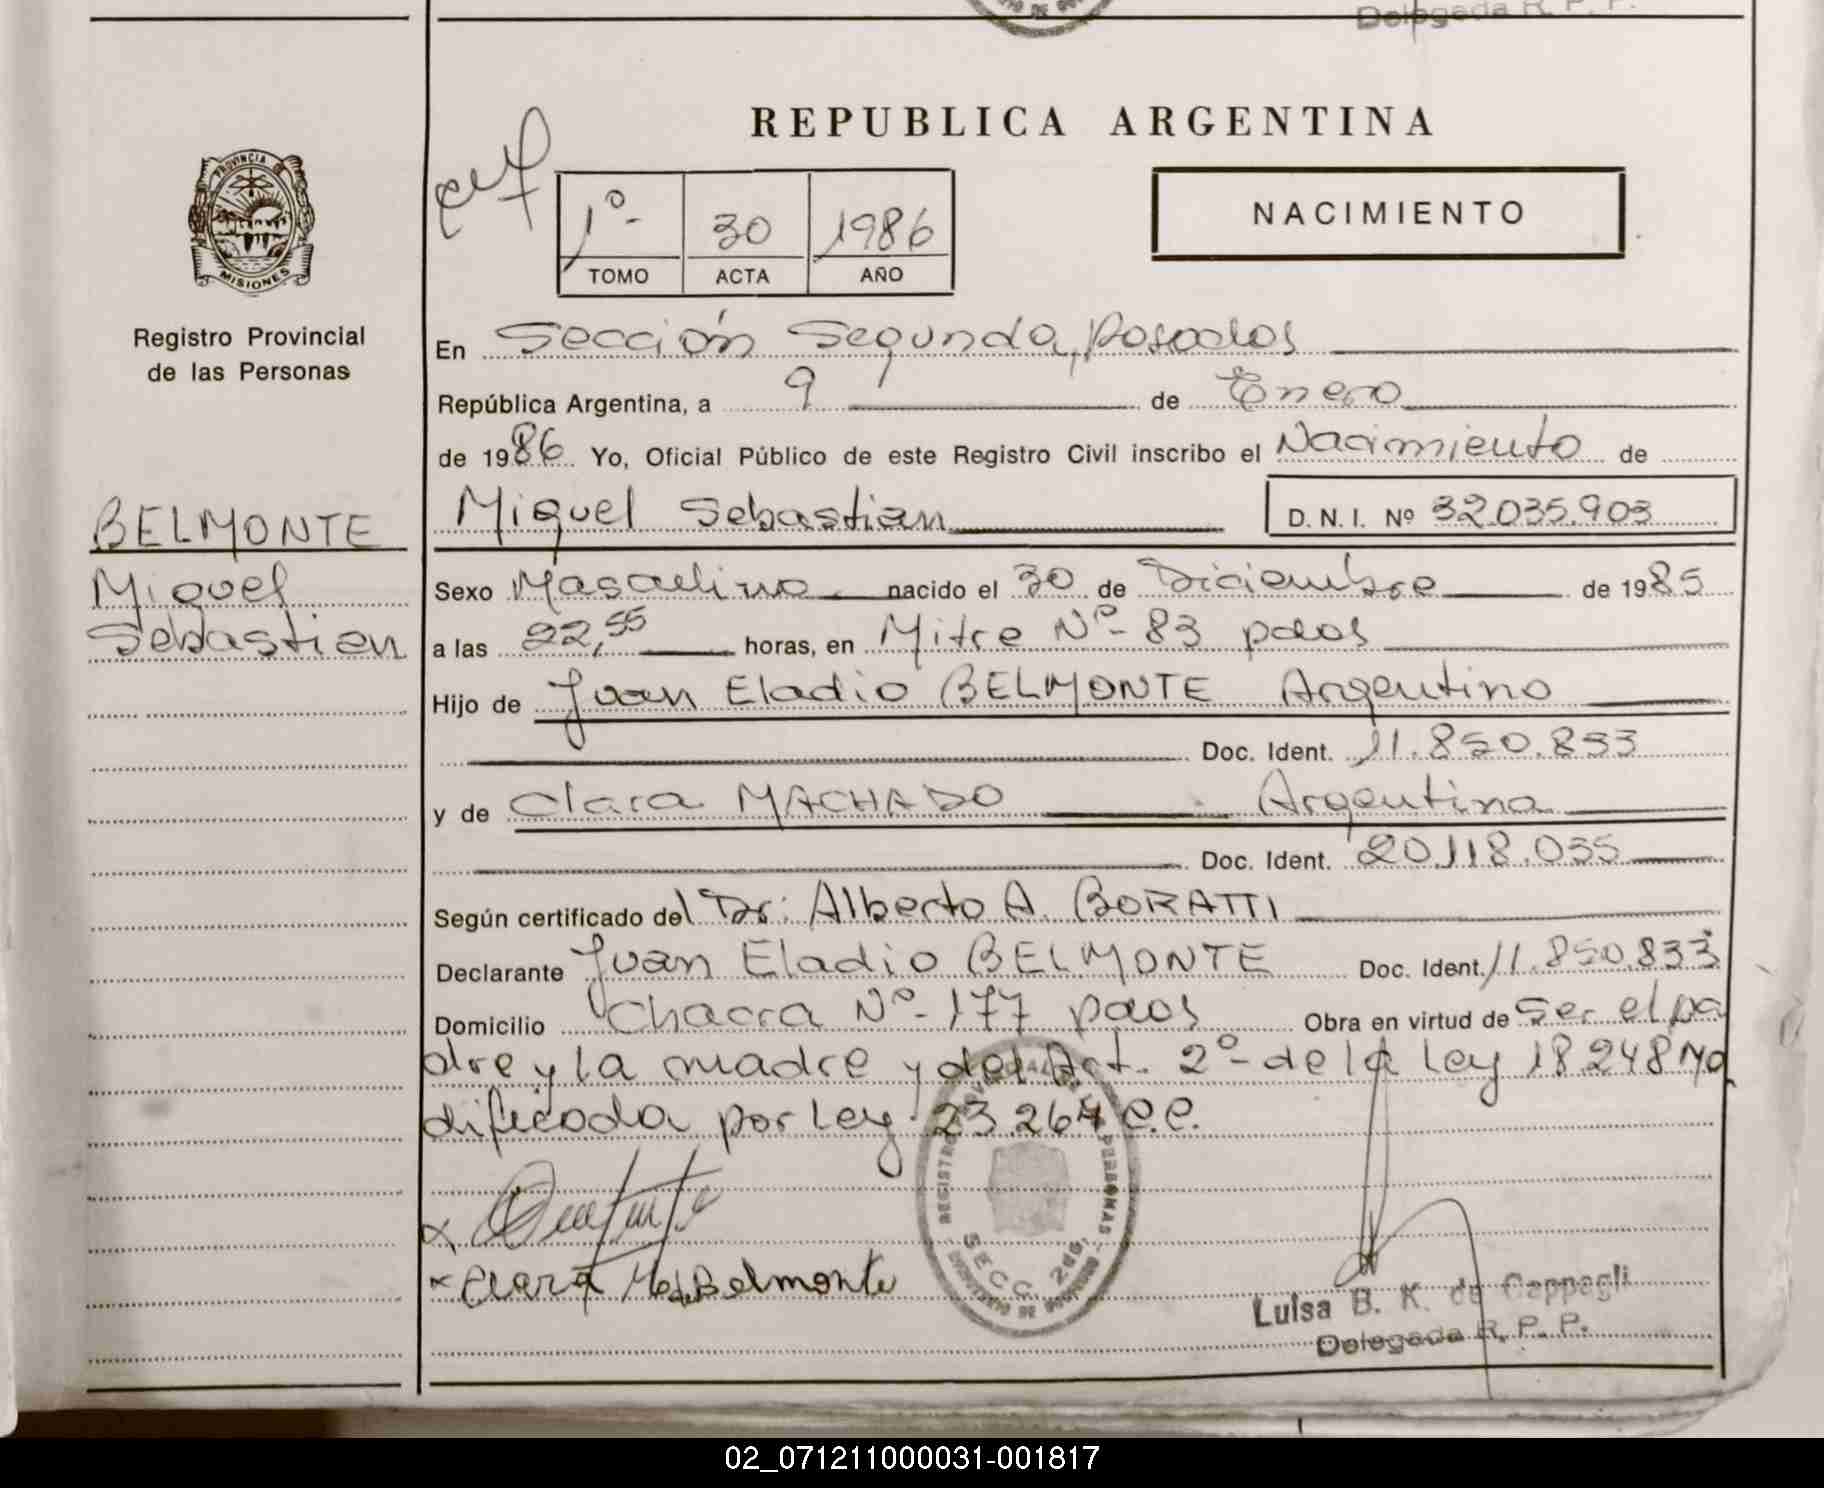 Delegada R. P. P.
REPUBLICA ARGENTINA
PROVINCIA
MISIONES
1º-
30
1986
TOMO
ACTA
AÑO
NACIMIENTO
Registro Provincial
de las Personas
En Sección Segunda, Posadas
República Argentina, a 9 de Enero
de 1986 Yo, Oficial Público de este Registro Civil inscribo el Nacimiento de
BELMONTE
Miguel Sebastian
D. N. I. Nº 32.035.903
Miguel
Sebastian
Sexo Masculino nacido el 30 de Diciembre de 1985
a las 22,55 horas, en Mitre Nº- 83 pdas
Hijo de Juan Eladio BELMONTE Argentino
Doc. Ident. 11.850.833
y de Clara MACHADO Argentina
Doc. Ident. 20.118.035
Según certificado del Dr: Alberto A. BORATTI
Declarante Juan Eladio BELMONTE Doc. Ident. 11.850.833
Domicilio Chacra Nº- 177 pdas Obra en virtud de Ser el pa
dre y la madre y del Art. 2º- de la Ley 18.248 Mo
dificada por Ley 23.264 e.e.
x
x Clara M. de Belmonte
REGISTRO PROVINCIAL DE PERSONAS
SECC. 2da.
Luisa B. K. de Cappagli
Delegada R. P. P.
02_071211000031-001817